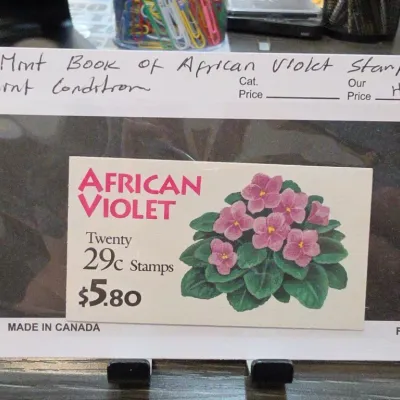 Mint Book of African Violet Stam
Condition
Cat.
Price
Our
Price
AFRICAN
VIOLET
Twenty
29c Stamps
$5.80
MADE IN CANADA